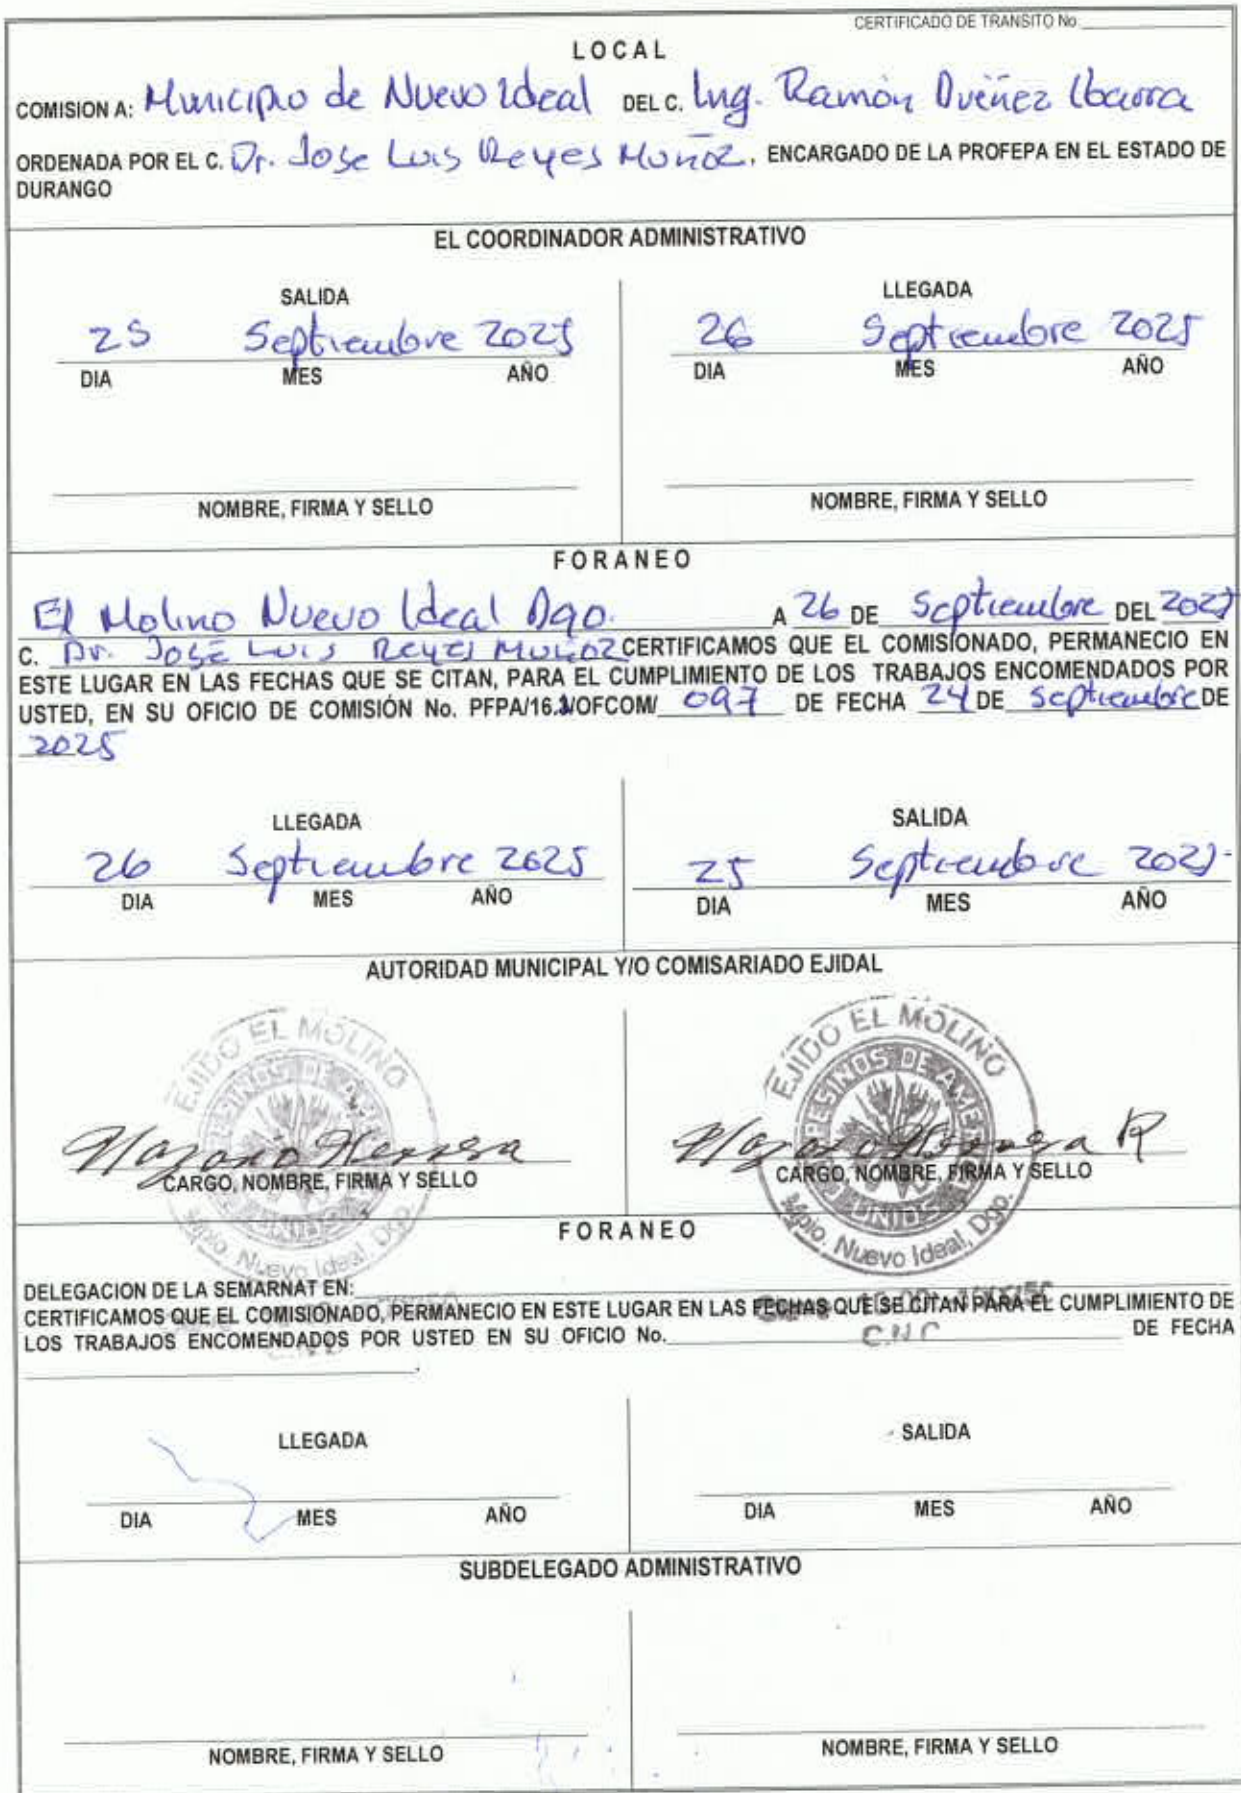 CERTIFICADO DE TRANSITO No.
LOCAL
COMISION A: Municipio de Nuevo Ideal DEL C. Ing. Ramón Dueñez Ibarra
ORDENADA POR EL C. Dr. Jose Luis Reyes Muñoz, ENCARGADO DE LA PROFEPA EN EL ESTADO DE
DURANGO
EL COORDINADOR ADMINISTRATIVO
SALIDA LLEGADA
25 Septiembre 2025 26 Septiembre 2025
DIA MES AÑO DIA MES AÑO
NOMBRE, FIRMA Y SELLO NOMBRE, FIRMA Y SELLO
FORANEO
El Molino Nuevo Ideal Dgo. A 26 DE Septiembre DEL 2025
C. Dr. José Luis Reyes Muñoz CERTIFICAMOS QUE EL COMISIONADO, PERMANECIO EN
ESTE LUGAR EN LAS FECHAS QUE SE CITAN, PARA EL CUMPLIMIENTO DE LOS TRABAJOS ENCOMENDADOS POR
USTED, EN SU OFICIO DE COMISIÓN No. PFPA/16. /OFCOM/ 097 DE FECHA 24 DE Septiembre DE
2025
LLEGADA SALIDA
26 Septiembre 2025 25 Septiembre 2025
DIA MES AÑO DIA MES AÑO
AUTORIDAD MUNICIPAL Y/O COMISARIADO EJIDAL
EJIDO EL MOLINO EJIDO EL MOLINO
Nazario Herrera Nazario Herrera R
CARGO, NOMBRE, FIRMA Y SELLO CARGO, NOMBRE, FIRMA Y SELLO
Mpio. Nuevo Ideal, Dgo. Mpio. Nuevo Ideal, Dgo.
FORANEO
DELEGACION DE LA SEMARNAT EN:
CERTIFICAMOS QUE EL COMISIONADO, PERMANECIO EN ESTE LUGAR EN LAS FECHAS QUE SE CITAN PARA EL CUMPLIMIENTO DE
LOS TRABAJOS ENCOMENDADOS POR USTED EN SU OFICIO No. C.N.C DE FECHA
LLEGADA SALIDA
DIA MES AÑO DIA MES AÑO
SUBDELEGADO ADMINISTRATIVO
NOMBRE, FIRMA Y SELLO NOMBRE, FIRMA Y SELLO